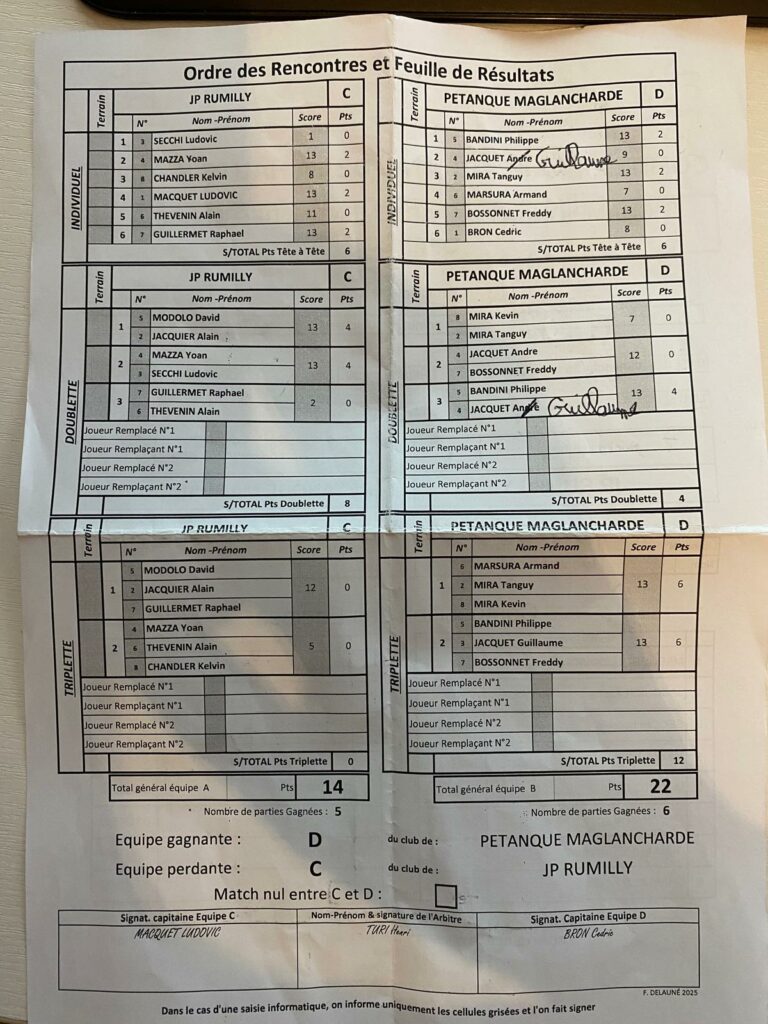 Ordre des Rencontres et Feuille de Résultats
JP RUMILLY C
Terrain N° Nom -Prénom Score Pts
INDIVIDUEL
1 3 SECCHI Ludovic 1 0
2 4 MAZZA Yoan 13 2
3 8 CHANDLER Kelvin 8 0
4 1 MACQUET LUDOVIC 13 2
5 6 THEVENIN Alain 11 0
6 7 GUILLERMET Raphael 13 2
S/TOTAL Pts Tête à Tête 6
PETANQUE MAGLANCHARDE D
Terrain N° Nom -Prénom Score Pts
INDIVIDUEL
1 5 BANDINI Philippe 13 2
2 4 JACQUET Andre Guillaume 9 0
3 2 MIRA Tanguy 13 2
4 6 MARSURA Armand 7 0
5 7 BOSSONNET Freddy 13 2
6 1 BRON Cedric 8 0
S/TOTAL Pts Tête à Tête 6
JP RUMILLY C
Terrain N° Nom -Prénom Score Pts
DOUBLETTE
1 5 MODOLO David 13 4
2 JACQUIER Alain
2 4 MAZZA Yoan 13 4
3 SECCHI Ludovic
3 7 GUILLERMET Raphael 2 0
6 THEVENIN Alain
Joueur Remplacé N°1
Joueur Remplaçant N°1
Joueur Remplacé N°2
Joueur Remplaçant N°2
S/TOTAL Pts Doublette 8
PETANQUE MAGLANCHARDE D
Terrain N° Nom -Prénom Score Pts
DOUBLETTE
1 8 MIRA Kevin 7 0
2 MIRA Tanguy
2 4 JACQUET Andre 12 0
7 BOSSONNET Freddy
3 5 BANDINI Philippe 13 4
4 JACQUET André Guillaume
Joueur Remplacé N°1
Joueur Remplaçant N°1
Joueur Remplacé N°2
Joueur Remplaçant N°2
S/TOTAL Pts Doublette 4
JP RUMILLY C
Terrain N° Nom -Prénom Score Pts
TRIPLETTE
1 5 MODOLO David 12 0
2 JACQUIER Alain
7 GUILLERMET Raphael
2 4 MAZZA Yoan 5 0
6 THEVENIN Alain
8 CHANDLER Kelvin
Joueur Remplacé N°1
Joueur Remplaçant N°1
Joueur Remplacé N°2
Joueur Remplaçant N°2
S/TOTAL Pts Triplette 0
PETANQUE MAGLANCHARDE D
Terrain N° Nom -Prénom Score Pts
TRIPLETTE
1 6 MARSURA Armand 13 6
2 MIRA Tanguy
8 MIRA Kevin
2 5 BANDINI Philippe 13 6
3 JACQUET Guillaume
7 BOSSONNET Freddy
Joueur Remplacé N°1
Joueur Remplaçant N°1
Joueur Remplacé N°2
Joueur Remplaçant N°2
S/TOTAL Pts Triplette 12
Total général équipe A Pts 14
Total général équipe B Pts 22
Nombre de parties Gagnées : 5
Nombre de parties Gagnées : 6
Equipe gagnante : D du club de : PETANQUE MAGLANCHARDE
Equipe perdante : C du club de : JP RUMILLY
Match nul entre C et D :
Signat. capitaine Equipe C
MACQUET LUDOVIC
Nom-Prénom & signature de l'Arbitre
TURI Henri
Signat. Capitaine Equipe D
BRON Cedric
F. DELAUNÉ 2025
Dans le cas d'une saisie informatique, on informe uniquement les cellules grisées et l'on fait signer